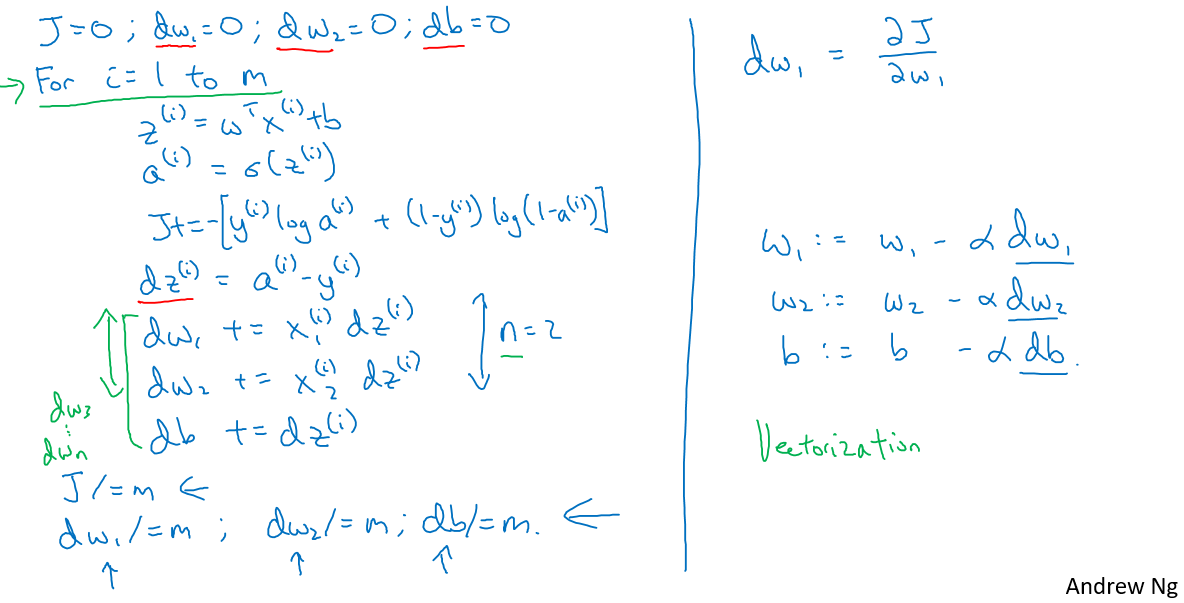 J=0 ; dw₁=0 ; dw₂=0 ; db=0
→ For i = 1 to m
z⁽ⁱ⁾ = wᵀx⁽ⁱ⁾+b
a⁽ⁱ⁾ = σ(z⁽ⁱ⁾)
J+=-[y⁽ⁱ⁾ log a⁽ⁱ⁾ + (1-y⁽ⁱ⁾) log(1-a⁽ⁱ⁾)]
dz⁽ⁱ⁾ = a⁽ⁱ⁾-y⁽ⁱ⁾
dw₁ += x₁⁽ⁱ⁾ dz⁽ⁱ⁾
dw₂ += x₂⁽ⁱ⁾ dz⁽ⁱ⁾
n=2
db += dz⁽ⁱ⁾
dw₃
⋮
dwₙ
J /= m ←
dw₁ /= m ; dw₂ /= m ; db /= m. ←
↑ ↑ ↑
dw₁ = ∂J/∂w₁
w₁ := w₁ - α dw₁
w₂ := w₂ - α dw₂
b := b - α db.
Vectorization
Andrew Ng